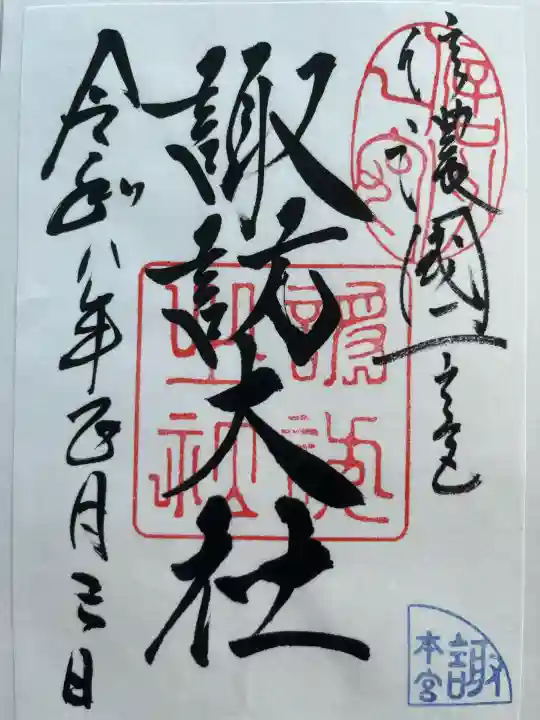 信濃國一之宮
諏訪大社
令和八年正月三日
諏
本宮